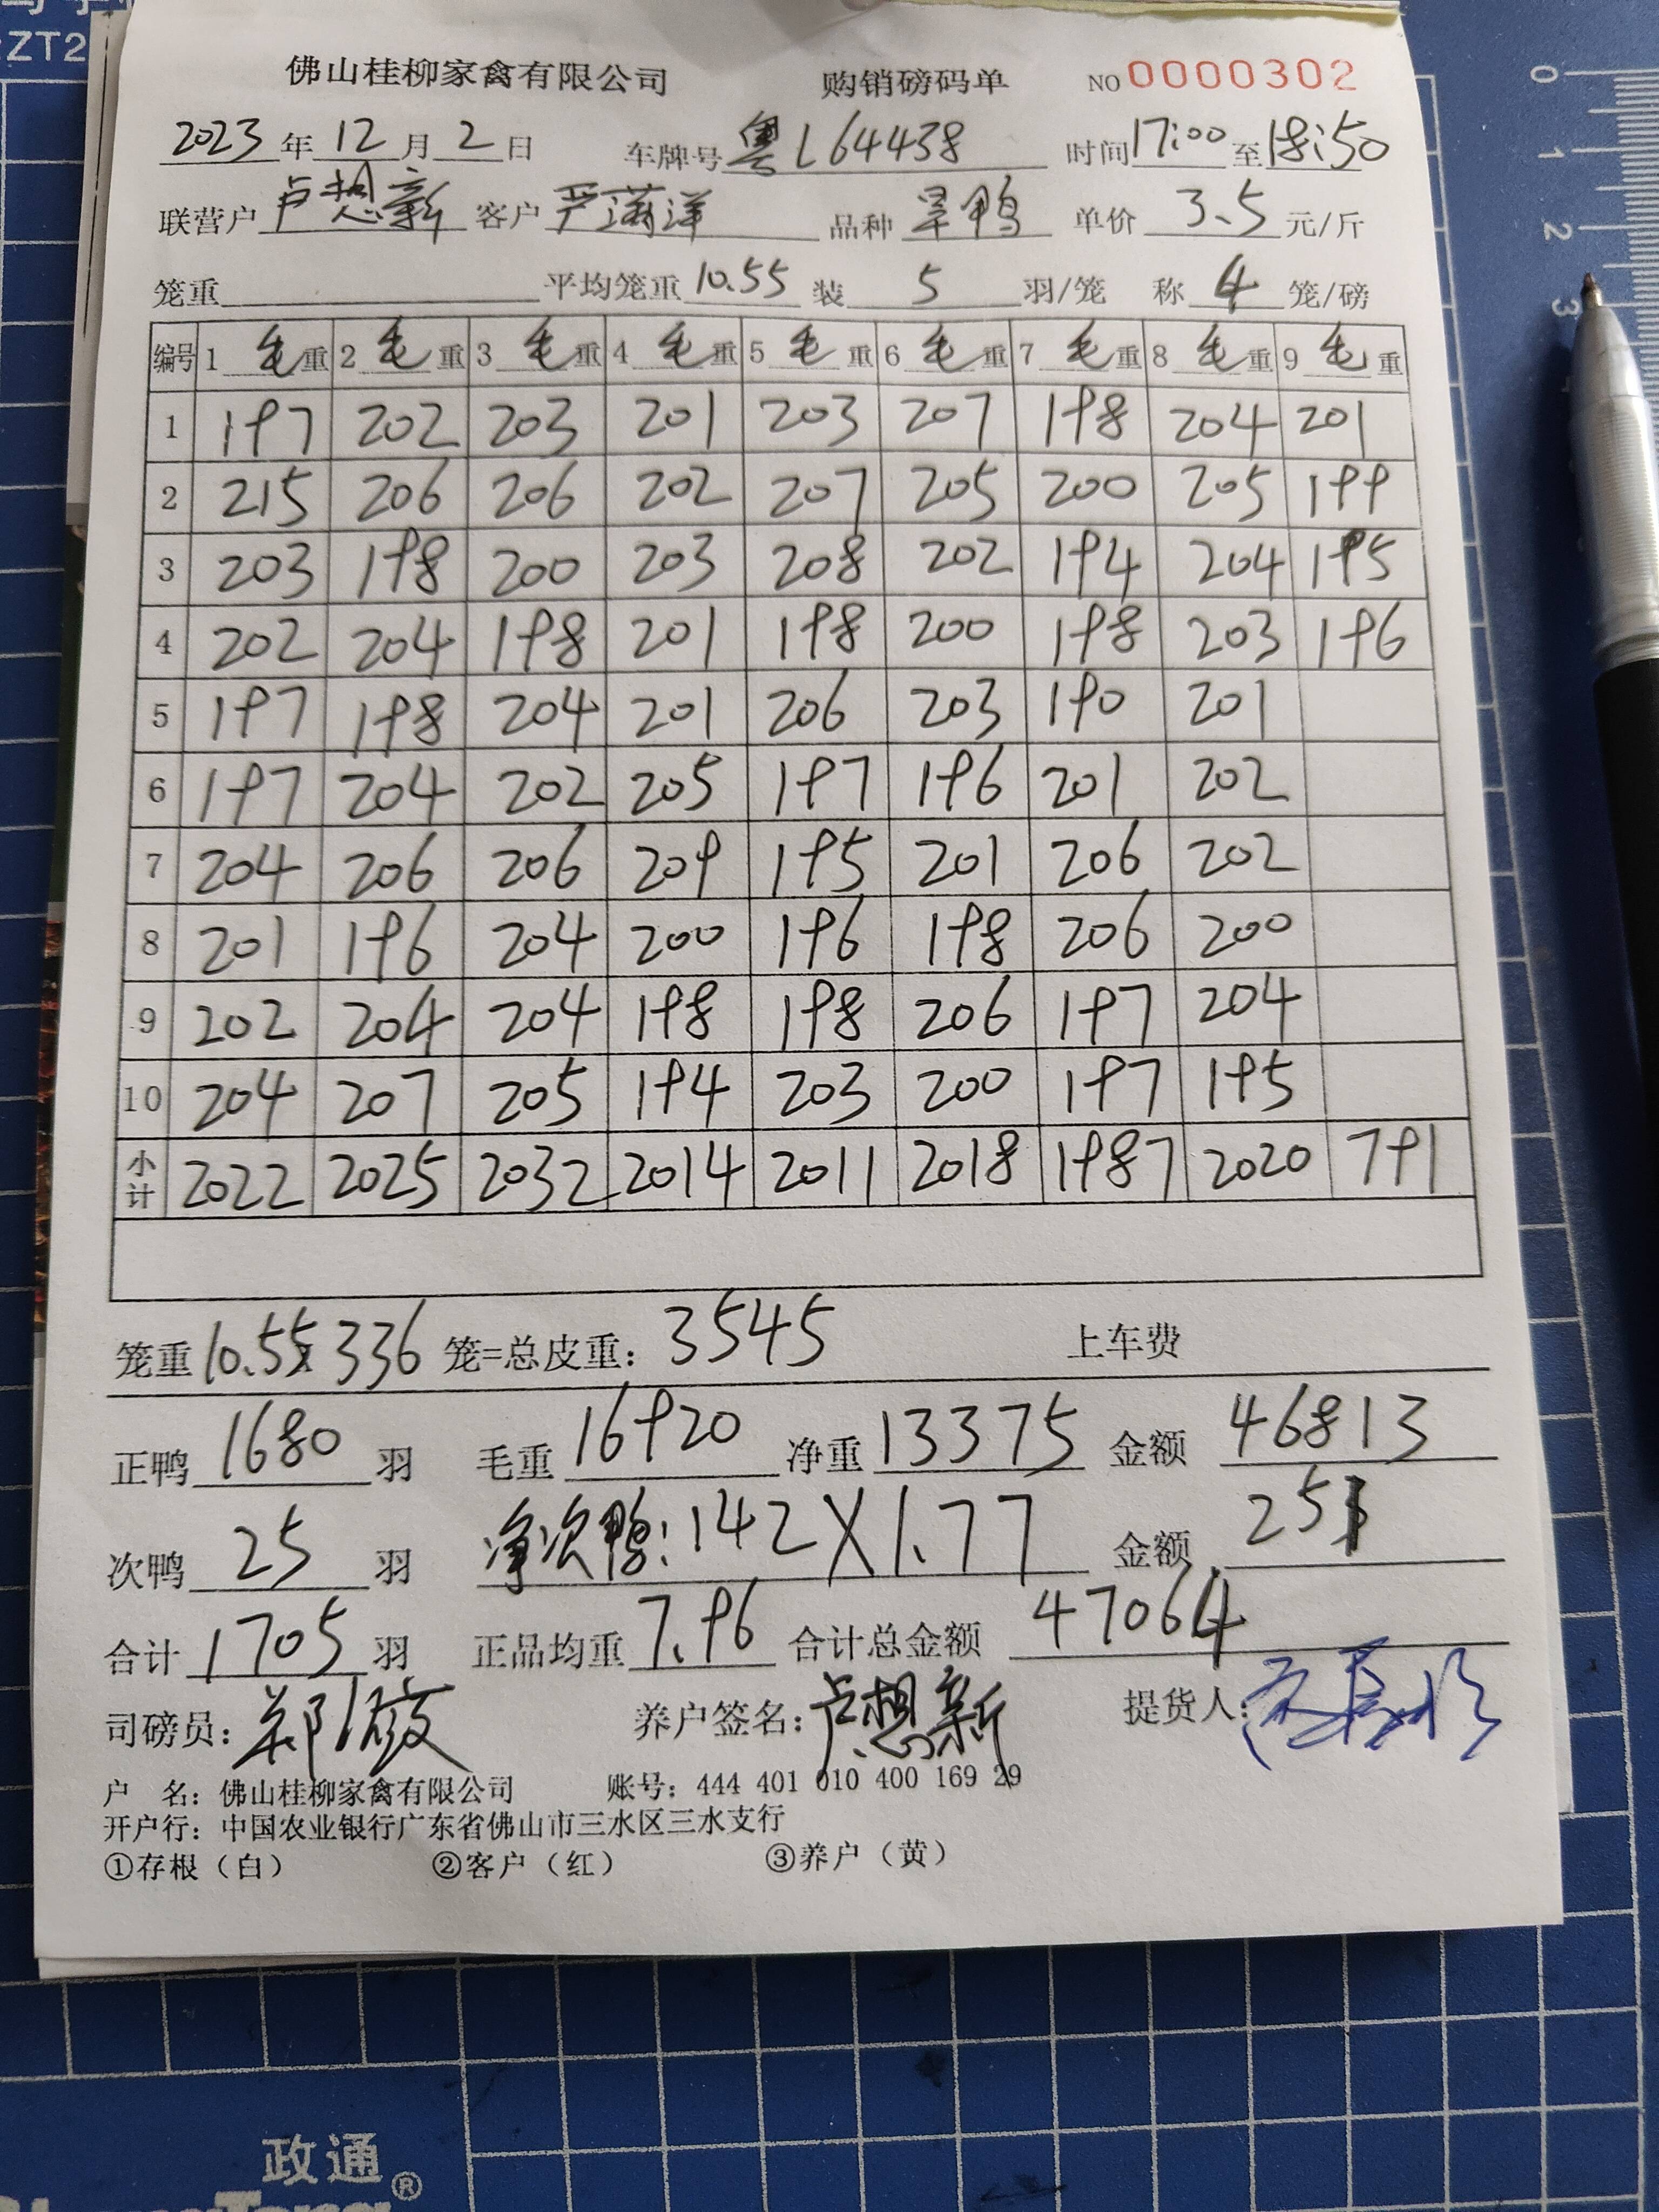 ZT2
佛山桂柳家禽有限公司 购销磅码单 NO 0000302
2023年12月2日 车牌号 粤L64438 时间17:00至18:50
联营户 卢想新 客户 严满洋 品种 旱鸭 单价 3.5 元/斤
笼重 平均笼重 10.55 装 5 羽/笼 称 4 笼/磅
编号 1 毛重 2 毛重 3 毛重 4 毛重 5 毛重 6 毛重 7 毛重 8 毛重 9 毛重
1 197 202 203 201 203 207 198 204 201
2 215 206 206 202 207 205 200 205 199
3 203 198 200 203 208 202 194 204 195
4 202 204 198 201 198 200 198 203 196
5 197 198 204 201 206 203 190 201
6 197 204 202 205 197 196 201 202
7 204 206 206 209 195 201 206 202
8 201 196 204 200 196 198 206 200
9 202 204 204 198 198 206 197 204
10 204 207 205 194 203 200 197 195
小计 2022 2025 2032 2014 2011 2018 1987 2020 791
笼重10.55x336 笼=总皮重：3545 上车费
正鸭 1680 羽 毛重 16920 净重 13375 金额 46813
次鸭 25 羽 净次鸭:142X1.77 金额 251
合计 1705 羽 正品均重 7.96 合计总金额 47064
司磅员： 养户签名：卢想新 提货人：
户 名：佛山桂柳家禽有限公司 账号：444 401 010 400 169 29
开户行：中国农业银行广东省佛山市三水区三水支行
①存根（白） ②客户（红） ③养户（黄）
0
1
2
3
政通®